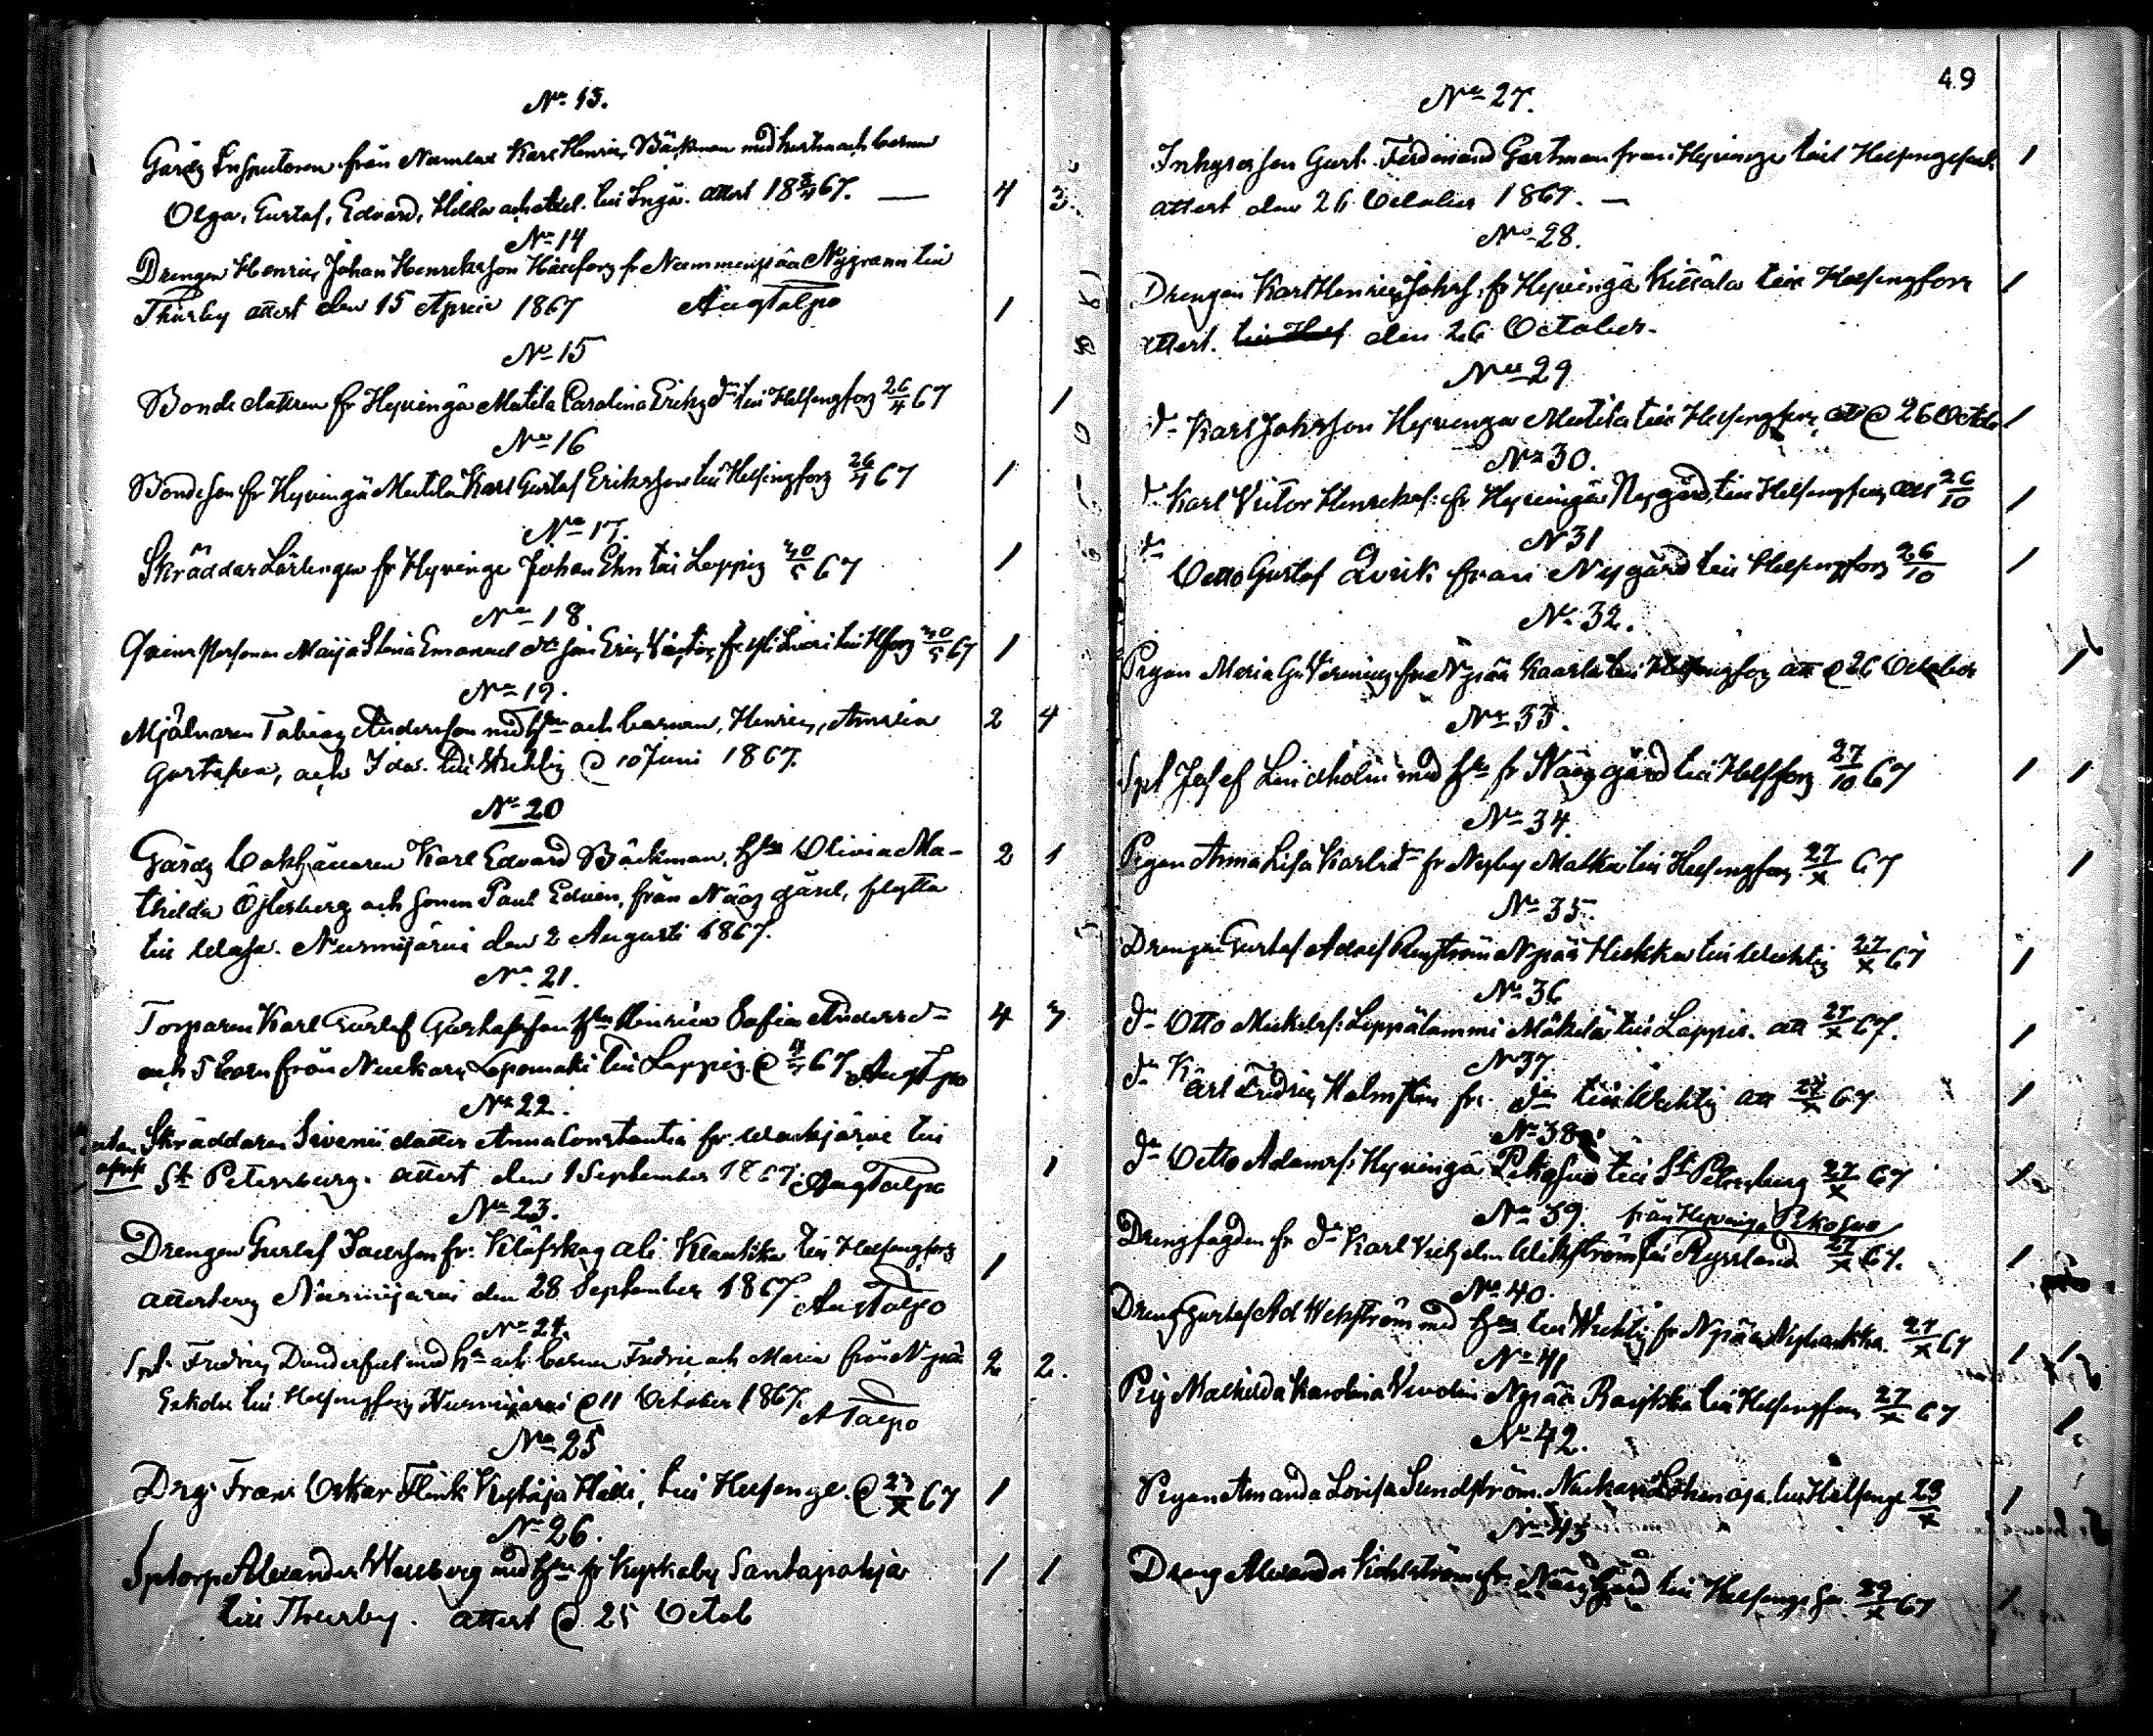 No 13.
Gårds Inspectoren från Numlax Karl Henric Bäckman med hustru och barnen
Olga, Gustaf, Edvard, Hilda och till Ingå. attest 18 67. — 4 3.
No 14
Drengen Henric Johan Henricksson Hällforg fr Nummenpää Nygrann till
Thusby attest den 15 April 1867 Aug Talpo 1
No 15
Bonde dottren fr Hyvingä Matila Carolina Eriks dr till Helsingfors 26/4 67 1
No 16
Bondeson fr Hyvingä Matila Karl Gustaf Eriksson till Helsingfors 26/4 67 1
No 17.
Skräddar Lärlingen fr Hyvinge Johan Ehn till Loppis 20/5 67 1
No 18
Qvinspersonen Maija Stina Emanuels dr till Hfors 20/5 67 1
No 19.
Mjölnaren Tobias Andersson med hu och barnen, Henric, Amalia 2 4
Gustafva, och Ida. till Wichtis d 10 Juni 1867.
No 20
Gårds Bokhållaren Karl Edvard Bäckman, hu Olivia Ma- 2 1
thilda Österberg och sonen Paul Edvin, från Nääs gård, flytta
till Wasa. Nurmijärvi den 2 Augusti 1867.
No 21.
Torparen Karl Gustaf Gustafsson hu Henrica Sofia Anders dr 4 3
och 5 barn från Nuckars Lepomäki till Loppis d 67 Aug Tpo
No 22.
Skräddaren Sivenii dotter Anna Constantia fr. Wachjärvi till
St Petersburg. attest den 1 September 1867. Aug Talpo 1
No 23.
Drengen Gustaf Isacsson fr: Kläfskog ali Klaukka till Helsingfors 1
attesteras Nurmijärvi den 28 September 1867. Aug Talpo
No 24.
Spt. Fredric Dunderfelt med hu och barnen Fredric och Maria från Npää 2 2.
Eskola till Helsingfors Nurmijärvi d 11 October 1867. A Talpo
No 25
Drg. Frans Oskar Flink Kytäjä Häkki, till Helsinge. d 23/X 67 1
No 26.
Sptorp Alexander Wessberg med hu fr Kyrkoby Santapakka 1 1
till Thusby. attest d. 25 Octob
49
No 27.
Inhysesson Gust. Ferdinand Gartman från Hyvinge till Helsingfors. 1
attest den 26 October 1867. —
No 28.
Drengen Karl Henric Johss. fr Hyvingä Kittälä till Helsingfors 1
attest. till Hel den 26 October.
No 29
do Karl Johsson Hyvinge Matila till Helsingfors att d 26 Octob 1
No 30.
do Karl Victor Henrickss: fr Hyvingä Nygård till Helsingfors att 26/10 1
N 31
do Otto Gustaf Qvick från Nygård till Helsingfors 26/10 1
No 32.
Pigan Maria Npää Kaarla till Helsingfors att d 26 October 1
No 33.
Spt Josef Lindholm med hu fr Nääs gård till Helsfors 27/10 67 1 1
No 34.
Pigan Anna Lisa Karls dr fr Nyby Matka till Helsingfors 27/X 67 1
No 35.
Drengen Gustaf Adolf Npää Heikka till Wichtis 27/X 67 1
No 36
do Otto Mickelss: Leppälammi Mäkelä till Loppis. att 27/X 67. 1
No 37
do Karl Fredric Holmsten fr. do till Wichtis att 27/X 67 1
No 38
do Otto Adamss: Hyvingä Petkosuo till St Petersburg 27/X 67 1
No 39. från Hyvinge Petkosuo
Drengfogden fr do Karl Vilhelm Wikström till Ryssland 27/X 67. 1
No 40.
Dreng Gustaf Ad Wekström med hu till Wichtis fr Npää 27/X 67 1 1
No 41
Pig Mathilda Karolina Npää Rajikka till Helsingfors 27/X 67 1
No 42.
Pigan Amanda Lovisa Sundström. Nuckari Lohenoja. till Helsinge 28/X 1
No 43
Dreng Alexander fr. Nääs Gård till Helsingefors 29/X 67 1